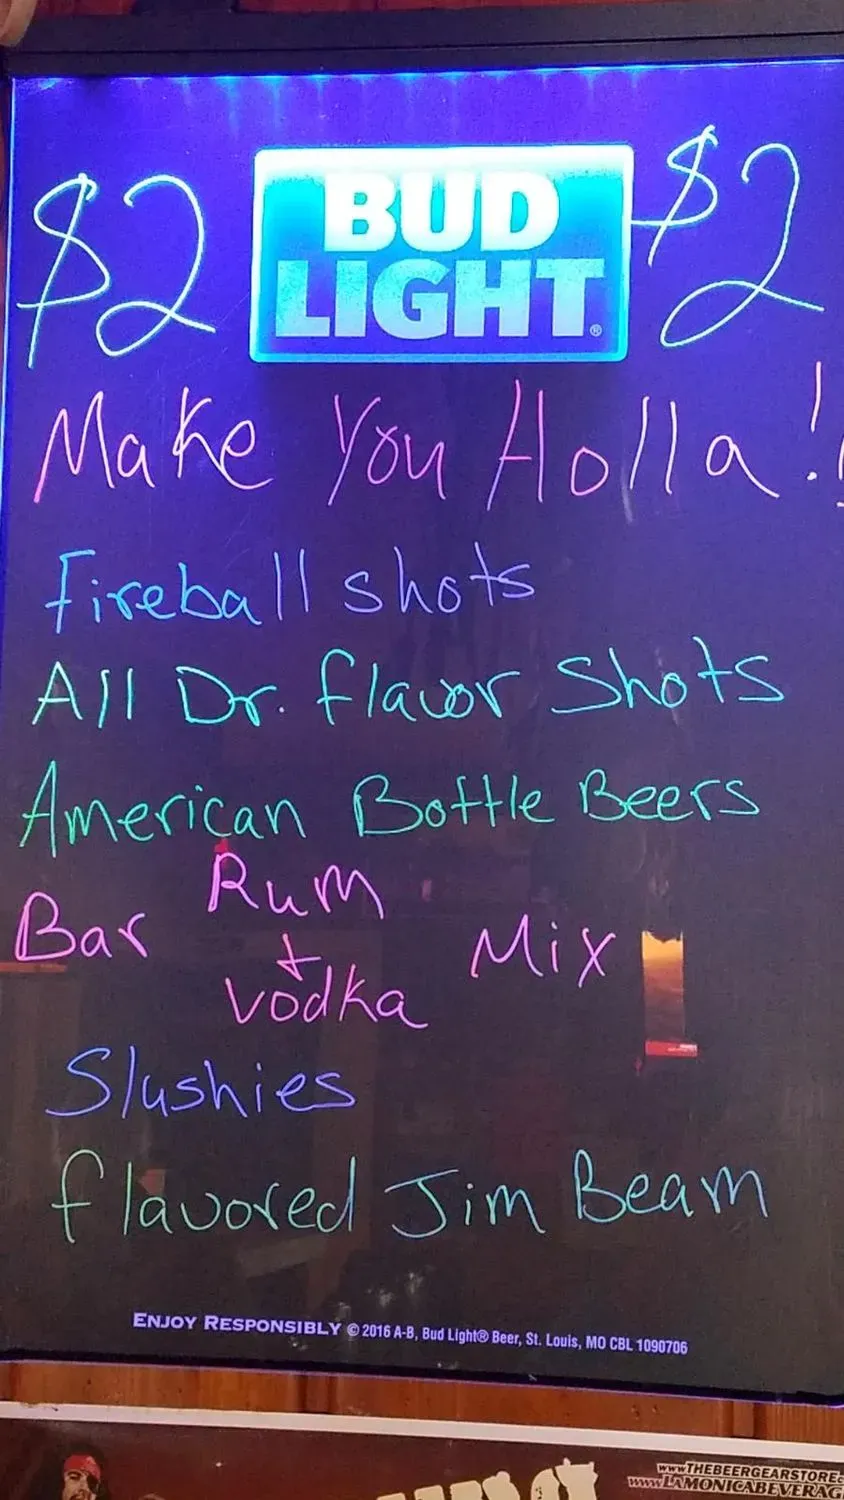 $2 BUD LIGHT® $2
Make You Holla!
Fireball shots
All Dr. flavor Shots
American Bottle Beers
Bar Rum + Vodka Mix
Slushies
flavored Jim Beam
ENJOY RESPONSIBLY © 2016 A-B, Bud Light® Beer, St. Louis, MO CBL 1090706
www.THEBEERGEARSTORE.
www.LAMONICABEVERAG